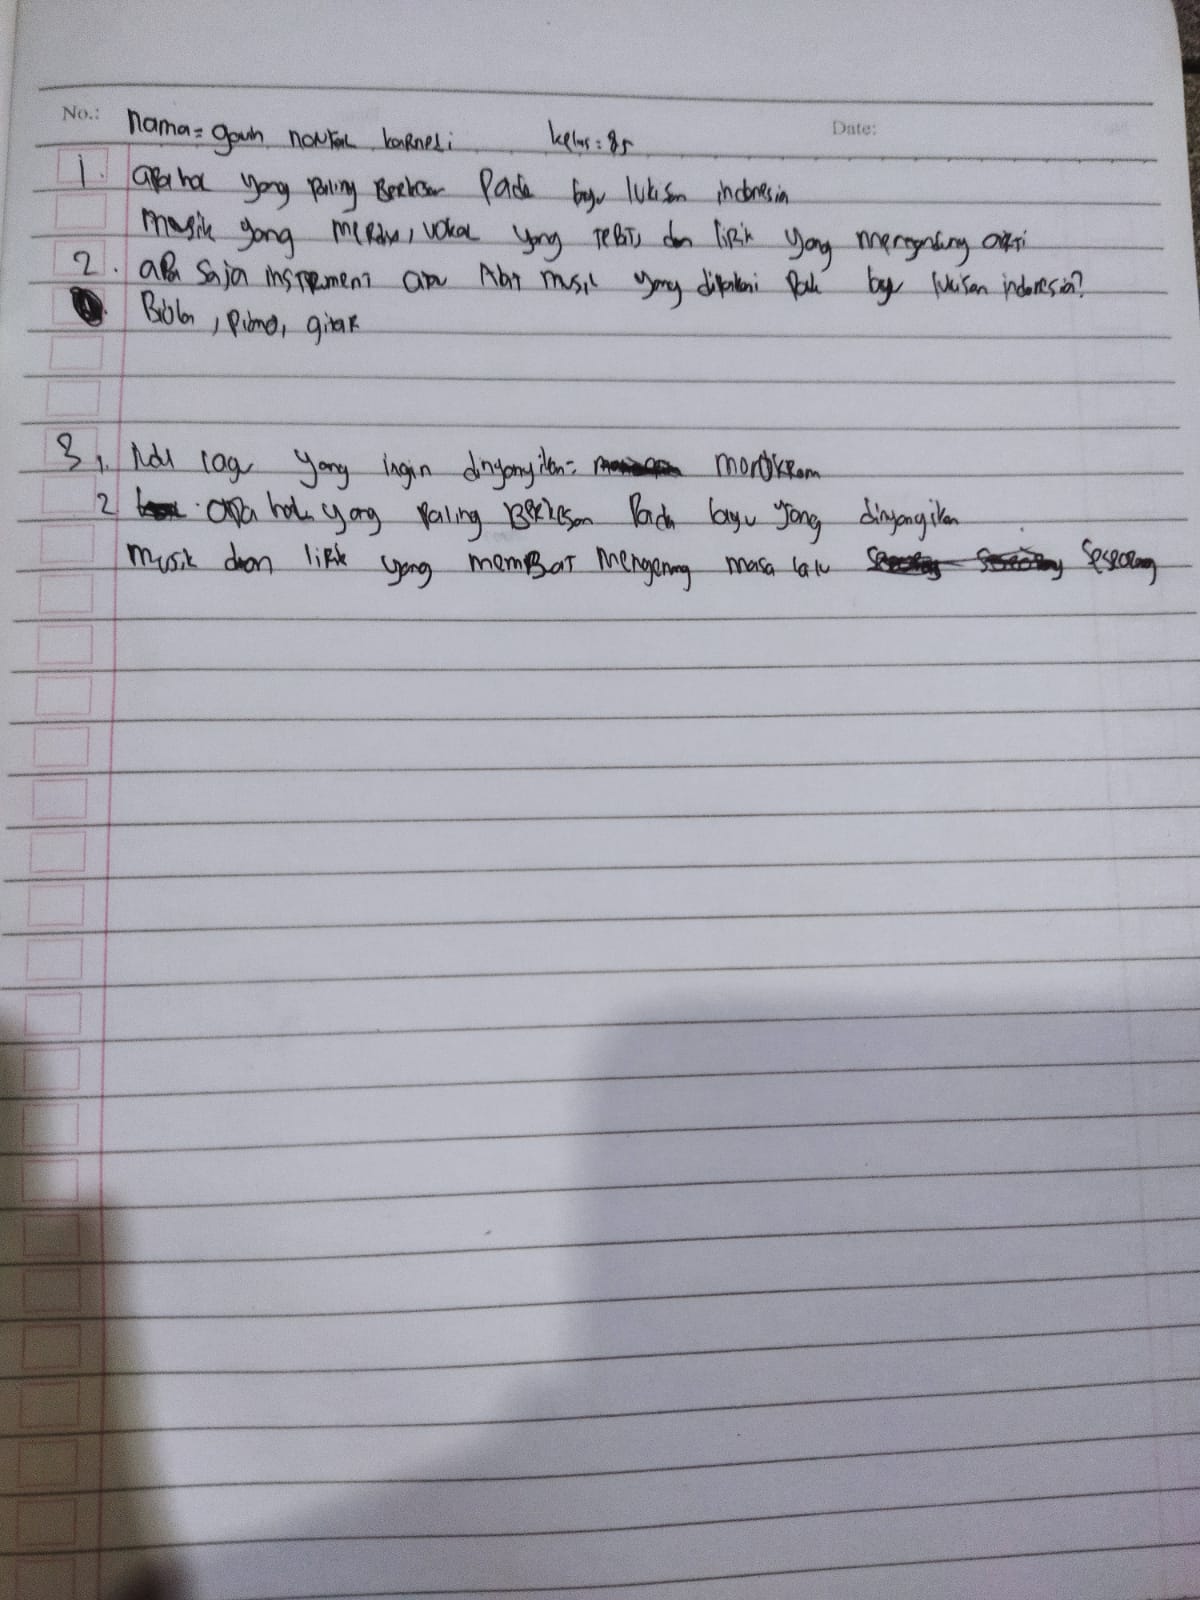 No.: nama= kelas: 85 Date:
1. apa hal yang paling Berkesan Pada lagu lukisan indonesia
musik yang merdu, vokal yang dan lirik yang mengandung arti
2. apa saja instrumen atau Alat musik yang dipakai Pada lagu lukisan indonesia?
Biola, piano, gitar
3. 1. lagu yang ingin dinyanyikan= monokrom
2 apa hal yang paling Berkesan Pada lagu yang dinyanyikan
musik dan lirik yang membuat mengenang masa lalu seseorang